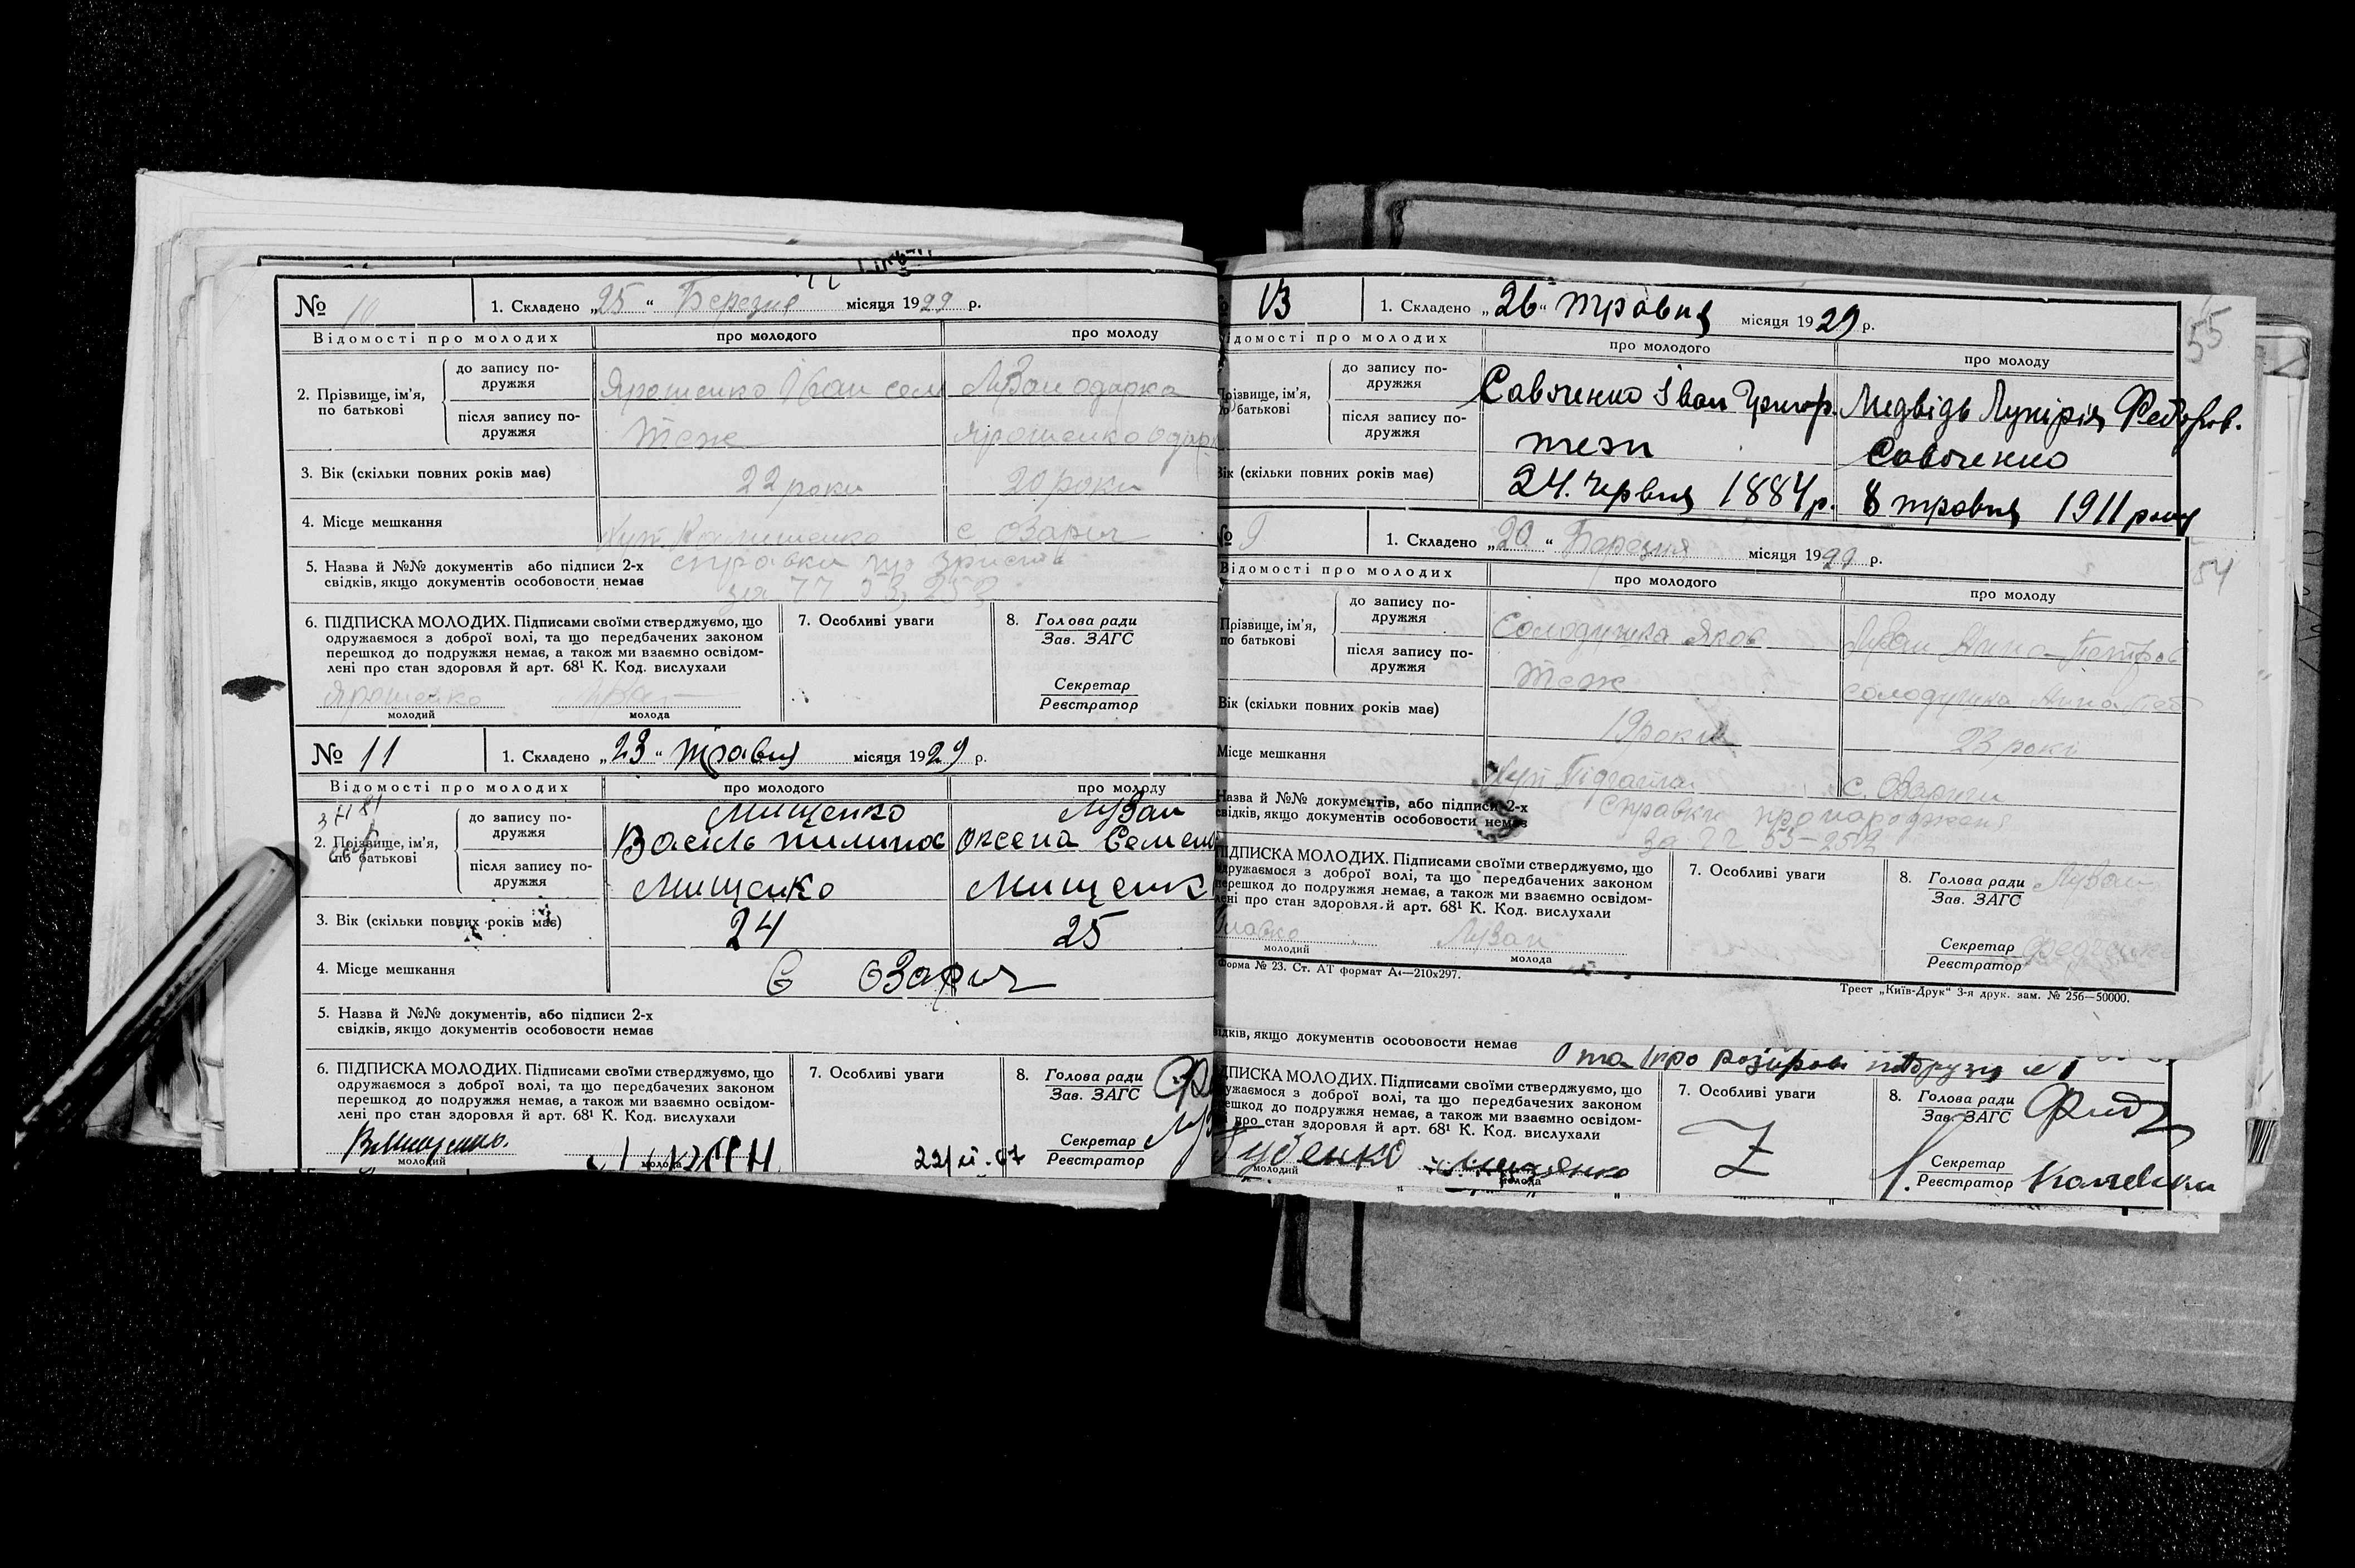 № 10 1. Складено „25“ Березня місяця 1929 р.
Відомості про молодих про молодого про молоду
2. Прізвище, ім’я, по батькові
до запису по-
дружжя
Ярошенко Іван сем Лузан одарка
після запису по-
дружжя
Теж Ярошенко Одарк
3. Вік (скільки повних років має) 22 роки 20 роки
4. Місце мешкання Хут. с Озарич
5. Назва й №№ документів або підписи 2-х справки про
свідків, якщо документів особовости немає за 77 53, 252
6. ПІДПИСКА МОЛОДИХ. Підписами своїми стверджуємо, що
одружаємося з доброї волі, та що передбачених законом
перешкод до подружжя немає, а також ми взаємно освідом-
лені про стан здоровля й арт. 68¹ К. Код. вислухали
Ярошенко Лузан
молодий молода
7. Особливі уваги
8. Голова ради
Зав. ЗАГС
Секретар
Реєстратор
№ 11 1. Складено „23“ травня місяця 1929 р.
Відомості про молодих про молодого про молоду
2. Прізвище, ім’я,
по батькові
до запису по-
дружжя
Мищенко Лузан
Василь пилипов Оксена Семен
після запису по-
дружжя
Мищенко Мищенк
3. Вік (скільки повних років має) 24 25
4. Місце мешкання С Озарич
5. Назва й №№ документів, або підписи 2-х
свідків, якщо документів особовости немає
6. ПІДПИСКА МОЛОДИХ. Підписами своїми стверджуємо, що
одружаємося з доброї волі, та що передбачених законом
перешкод до подружжя немає, а також ми взаємно освідом-
лені про стан здоровля й арт. 68¹ К. Код. вислухали
молодий молода
7. Особливі уваги
8. Голова ради
Зав. ЗАГС
Секретар
Реєстратор
13 1. Складено „26“ травня місяця 1929 р.
55
ідомості про молодих про молодого про молоду
Прізвище, ім’я,
по батькові
до запису по-
дружжя
Савченко Іван Григор. Медвідь Лукірія Федоров.
після запису по-
дружжя
теж Савченко
Вік (скільки повних років має) 24. червня 1884 р. 8 травня 1911 року
№ 9 1. Складено „20“ Березня місяця 1929 р.
54
Відомості про молодих про молодого про молоду
Прізвище, ім’я,
по батькові
до запису по-
дружжя
Солодушка Яков Лузан Анна Петров
після запису по-
дружжя
Теж Солодушка Анна Пет
Вік (скільки повних років має) 19 роки 23 рокі
Місце мешкання Хут с. Озаричи
Назва й №№ документів, або підписи 2-х справки про народження
свідків, якщо документів особовости немає за 77 53-252
ПІДПИСКА МОЛОДИХ. Підписами своїми стверджуємо, що
одружаємося з доброї волі, та що передбачених законом
перешкод до подружжя немає, а також ми взаємно освідом-
лені про стан здоровля й арт. 68¹ К. Код. вислухали
Лузан
молодий молода
7. Особливі уваги
8. Голова ради Лузан
Зав. ЗАГС
Секретар
Реєстратор
Форма № 23. Ст. АТ формат А₄—210х297.
Трест „Київ-Друк“ 3-я друк. зам. № 256—50000.
відків, якщо документів особовости немає
ПІДПИСКА МОЛОДИХ. Підписами своїми стверджуємо, що
ружаємося з доброї волі, та що передбачених законом
ешкод до подружжя немає, а також ми взаємно освідом-
про стан здоровля й арт. 68¹ К. Код. вислухали
Губенко
молодий молода
7. Особливі уваги
Z
8. Голова ради
Зав. ЗАГС
Секретар
Реєстратор